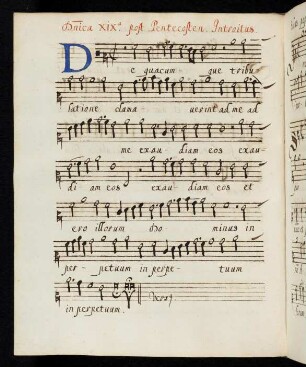 Dñica XIXᵃ post Pentecosten. Introitus.
De quacum- que tribu
latione clama verint ad me ad
me exau diam eos exau
di am eos exau- diam eos et
ero illorum Do minus in
per- petuum in perpe- tuum
in perpetuum.